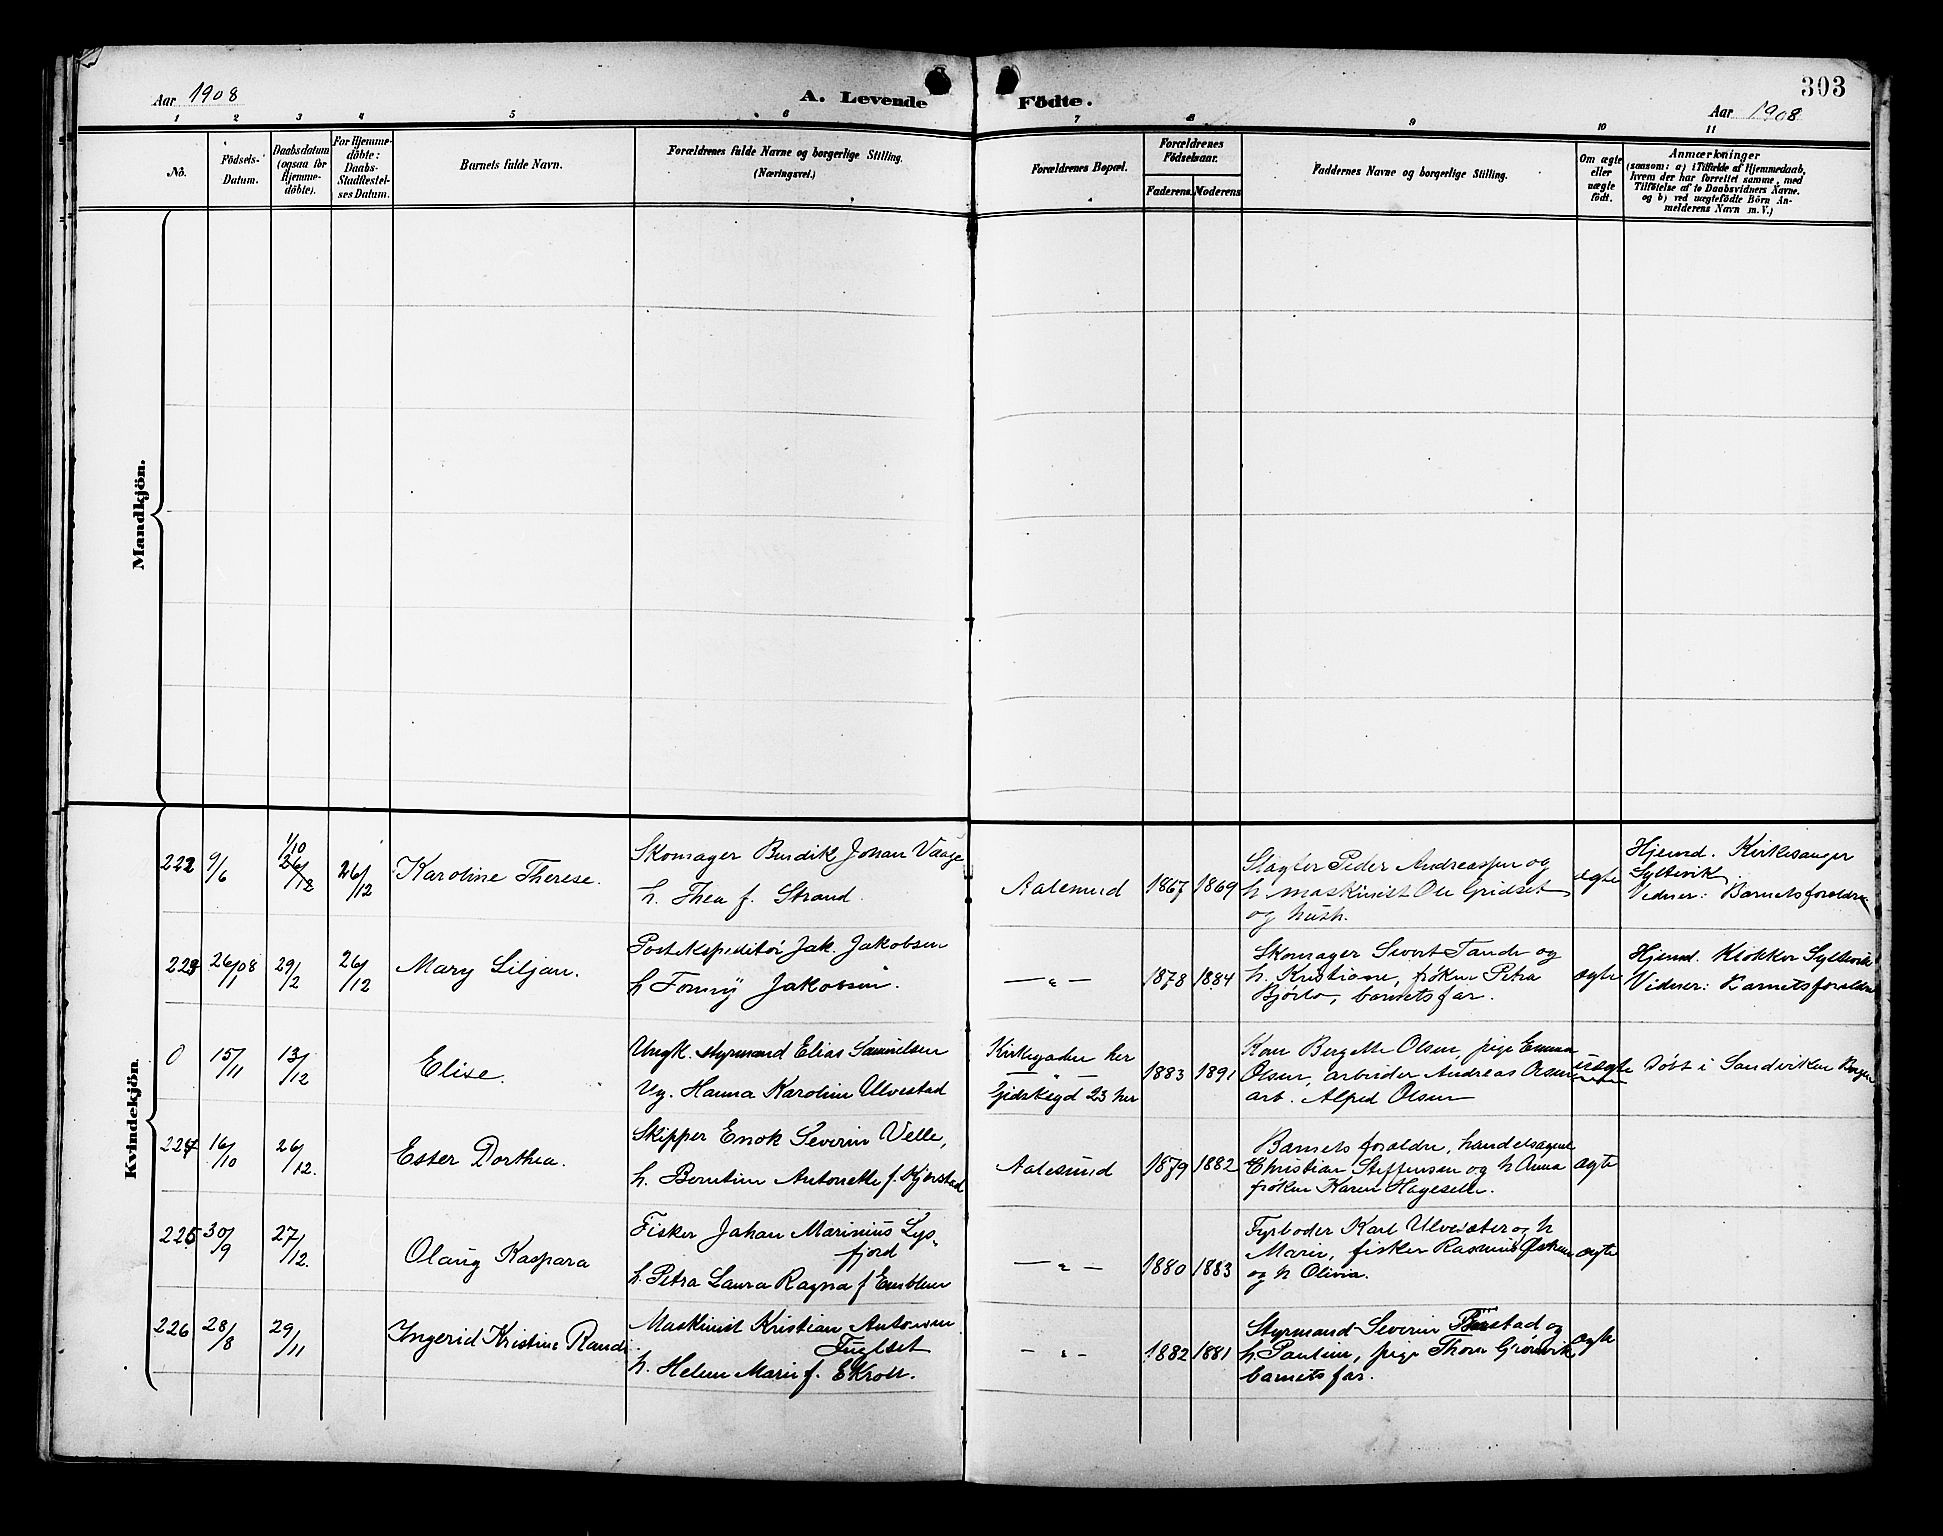 303
Aar 1908
A. Levende Födte.
Aar 1908
1 2 3 4 5 6 7 8 9 10 11
No.
Födsels-
Datum.
Daabsdatum
(ogsaa for
Hjemme-
döbte).
For Hjemme-
döbte:
Daabs-
Stadfestel-
ses Datum.
Barnets fulde Navn.
Forældrenes fulde Navne og borgerlige Stilling.
(Næringsvei.)
Forældrenes Bopæl.
Forældrenes
Födselsaar.
Faderens. Moderens
Faddernes Navne og borgerlige Stilling.
Om ægte
eller
uægte
födt.
Anmærkninger
(saasom: a) i Tilfælde af Hjemmedaab,
hvem der har forrettet samme, med
Tilföielse af to Daabsvidners Navne.
og b) ved uægtefödte Börn An-
melderens Navn m. V.)
Mandkjön.
Kvindekjön.
222 9/6
1/10
26/12
26/12
Karoline Therese.
Skomager Johan Vaage
h. Thea f. Strand.
Aalesund
1867 1869
Slagter Peder Andreassen og
h maskinist Ole Gridset
og hustr.
ægte
Hjemd. Kirkesanger
Syltevik
Vidner: Barnets forældre
223 26/1 08 29/2 26/12
Mary Liljan.
Postekspeditør Jak. Jakobsen
h Jakobsen.
— " —
1878 1884
Skomager Sivert Tande og
h. Kristiane, frøken Petra
Bjørlo, barnets far.
ægte
Hjemd. Klokker Syltevik
Vidner: Barnets forældre
0 15/11 13/12
Elise.
Ungk. styrmand Elias Samuelsen
Ug. Hanna Karoline Ulvestad
Kirkegaden her
— " —
Gidskegd 23 her
1883 1891
Kone Bergette Olsen, pige Emma
Olsen, arbeider Andreas Olsen
arb. Alfred Olsen
uægte
Døbt i Sandviken Bergen
224 16/10 26/12.
Ester Dorthea.
Skipper Enok Severin Velle,
h. Berntine Antonette f. Kjerstad
Aalesund
1879 1882
Barnets forældre, handelsagent
Christian Steffensen og h Anna
frøken Karen Hageselle.
ægte
225 30/9 27/12.
Olaug Kaspara
Fisker Johan Marinius Lys-
fjord
h. Petra Laura Ragna f Emblem
— " —
1880 1883
Fyrbøder Karl Ulvesæter og h
Marie, fisker Rasmus
og h Olivia.
ægte
226 28/8 29/11
Ingerid Kristine Randi
Maskinist Kristian Antonsen
Fuglset
h. Helene Marie f. Ekroll.
— " —
1882 1881
Styrmand Severin og
h. Pauline, pige Thora Grønvik
barnets far.
ægte